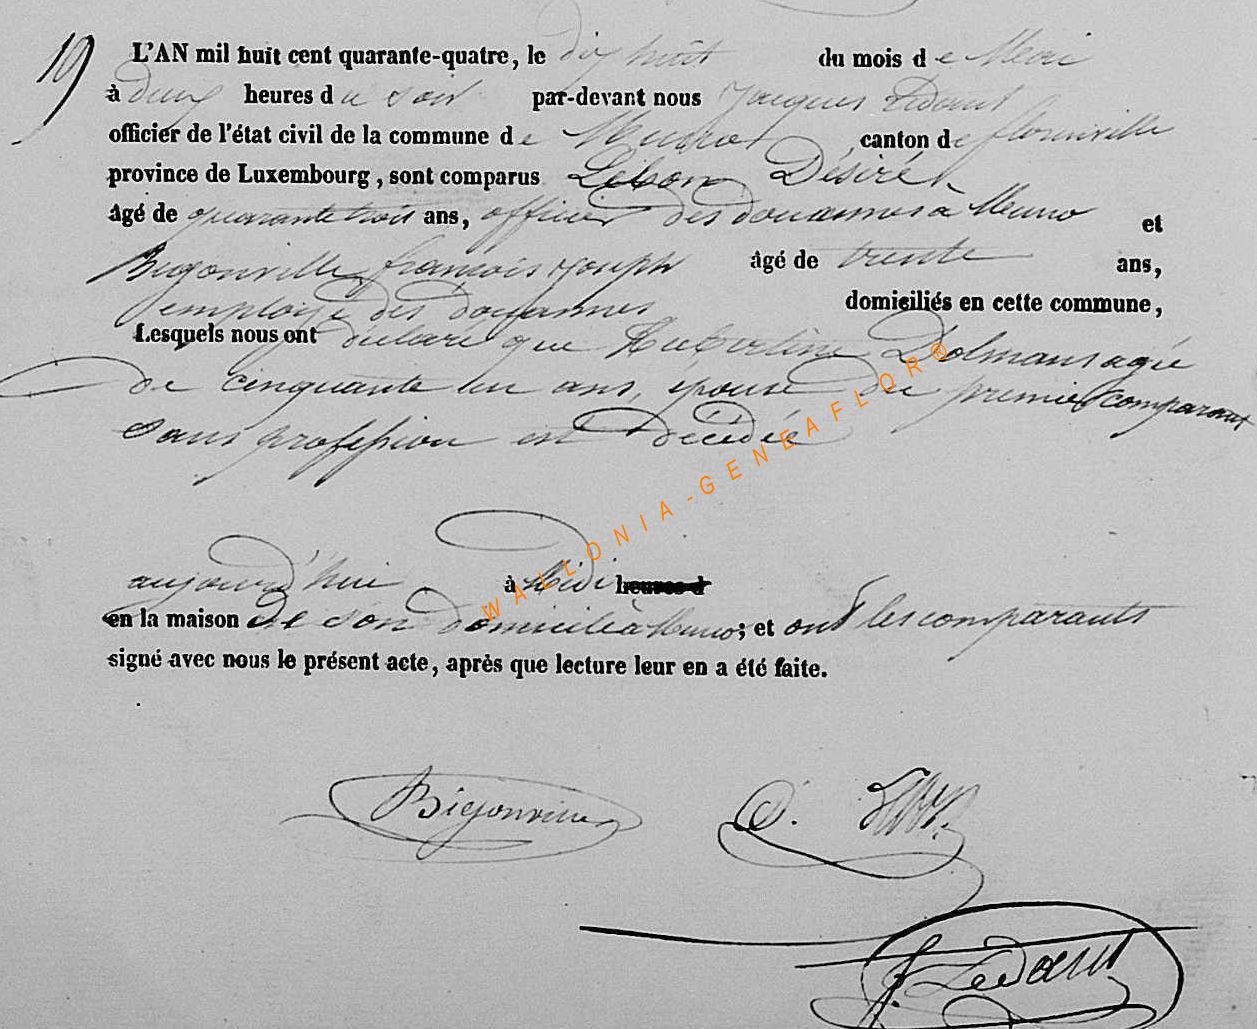 19
L'AN mil huit cent quarante-quatre, le dix huit du mois de Mai
à deux heures du soir par-devant nous Jacques Ledant
officier de l'état civil de la commune de Muno canton de florenville
province de Luxembourg, sont comparus Désiré
âgé de quarante trois ans, officier des douannes à Muno et
Bigonville françois Joseph âgé de trente ans,
employé des douannes domiciliés en cette commune,
Lesquels nous ont déclaré que Hubertine Dolmans agée
de cinquante un ans, épouse du premier comparant
sans profession est décédée
aujourd'hui à Midi heures d
en la maison de son domicile à Muno; et ont les comparants
signé avec nous le présent acte, après que lecture leur en a été faite.
WALLONIA-GENEAFLOR®
Bigonville D.
J. Ledant